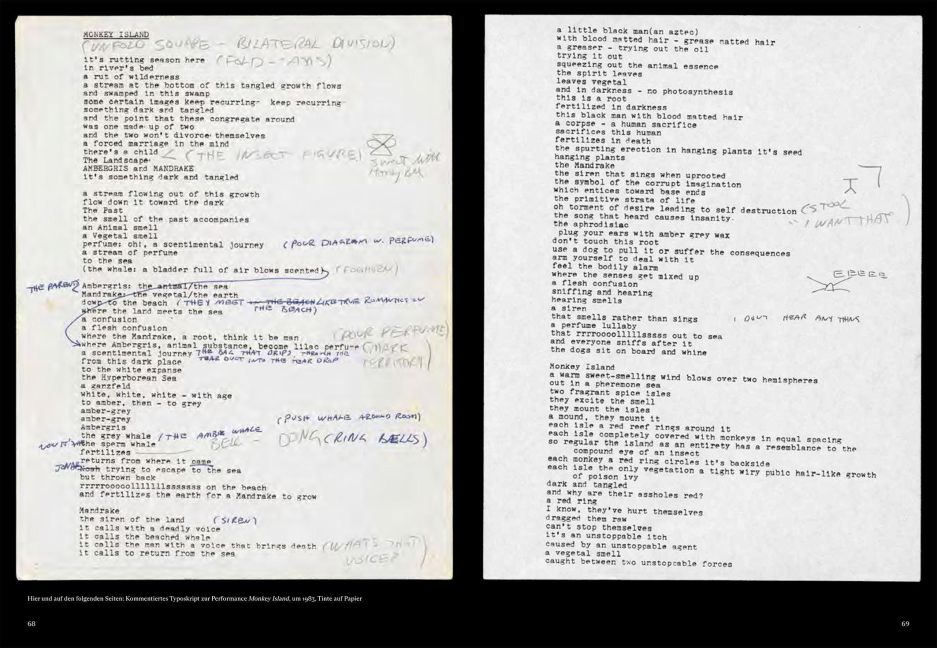 MONKEY ISLAND
(UNFOLD SQUARE - BILATERAL DIVISION)
it's rutting season here (FOLD - 
in river's bed
a rut of wilderness
a stream at the bottom of this tangled growth flows
and swamped in this swamp
some certain images keep recurring- keep recurring-
something dark and tangled
and the point that these congregate around
was one made up of two
and the two won't divorce themselves
a forced marriage in the mind
there's a child (THE INSECT FIGURE)
The Landscape
AMBERGRIS and MANDRAKE
it's something dark and tangled
a stream flowing out of this growth
flow down it toward the dark
The Past
the smell of the past accompanies
an Animal smell
a Vegetal smell
perfume: oh!, a scentimental journey (POUR DIAGRAM W. PERFUME)
a stream of perfume
to the sea
(the whale: a bladder full of air blows scented) (FOGHORN)
THE PARENTS Ambergris: the animal/the sea
Mandrake: the vegetal/the earth
down to the beach (THEY MEET THE BEACH LIKE TRUE ROMANTICS ON
where the land meets the sea THE BEACH)
a confusion
a flesh confusion
where the Mandrake, a root, think it be man (POUR PERFUME)
where Ambergris, animal substance, become lilac perfume (MARK
a scentimental journey THE BAG THAT DRIPS THROUGH THE TERRITORY)
from this dark place TEAR DUCT INTO THE TEAR DROP
to the white expanse
the Hyperborean Sea
a ganzfeld
white, white, white - with age
to amber, then - to grey
amber-grey
amber-grey (PUSH WHALE AROUND ROOM)
Ambergris
the grey whale / THE AMBIE WHALE
NOW IT'S the sperm whale BELL - DONG (RING BELLS)
fertilizes
returns from where it came
JONAH Noah trying to escape to the sea
but thrown back
rrrrroooollllllllsssssss on the beach
and fertilizes the earth for a Mandrake to grow
Mandrake
the siren of the land (SIREN)
it calls with a deadly voice
it calls the beached whale
it calls the man with a voice that brings death (WHATS THAT
it calls to return from the sea VOICE?)
a little black man(an aztec)
with blood matted hair - grease matted hair
a greaser - trying out the oil
trying it out
squeezing out the animal essence
the spirit leaves
leaves vegetal
and in darkness - no photosynthesis
this is a root
fertilized in darkness
this black man with blood matted hair
a corpse - a human sacrifice
sacrifices this human
fertilizes in death
the spurting erection in hanging plants it's seed
hanging plants
the Mandrake
the siren that sings when uprooted
the symbol of the corrupt imagination
which entices toward base ends
the primitive strata of life
oh torment of desire leading to self destruction (STOOL
the song that heard causes insanity. "I WANT THAT
the aphrodisiac
plug your ears with amber grey wax
don't touch this root
use a dog to pull it or suffer the consequences
arm yourself to deal with it
feel the bodily alarm
where the senses get mixed up EEEEE
a flesh confusion
sniffing and hearing
hearing smells
a siren
that smells rather than sings I DON'T HEAR ANY THING
a perfume lullaby
that rrrroooollllsssss out to sea
and everyone sniffs after it
the dogs sit on board and whine
Monkey Island
a warm sweet-smelling wind blows over two hemispheres
out in a pheremone sea
two fragrant spice isles
they excite the smell
they mount the isles
a mound, they mount it
each isle a red reef rings around it
each isle completely covered with monkeys in equal spacing
so regular the island as an entirety has a resemblance to the
compound eye of an insect
each monkey a red ring circles it's backside
each isle the only vegetation a tight wiry pubic hair-like growth
of poison ivy
dark and tangled
and why are their assholes red?
a red ring
I know, they've hurt themselves
dragged them raw
can't stop themselves
it's an unstoppable itch
caused by an unstoppable agent
a vegetal smell
caught between two unstoppable forces
Hier und auf den folgenden Seiten: Kommentiertes Typoskript zur Performance Monkey Island, um 1983, Tinte auf Papier
68
69